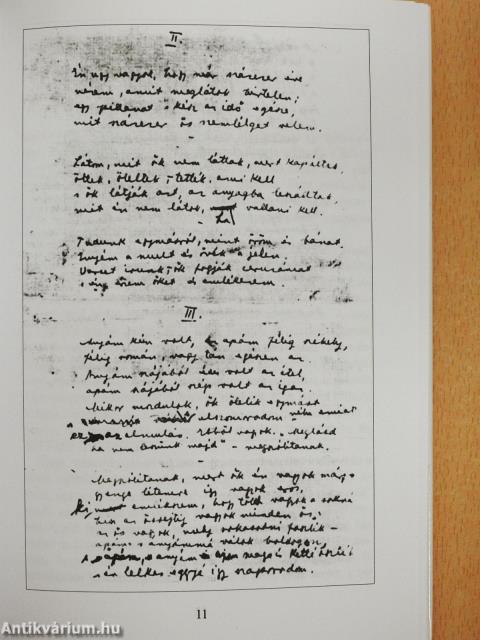 II.
Én úgy vagyok, hogy már százezer éve
nézem, amit meglátok hirtelen;
egy pillanat s kész az idő egésze,
mit százezer ős szemlélget velem.
Látom, mit ők nem láttak, mert kapáltak,
öltek, öleltek, tették, ami kell
s ők látják azt, az anyagba leszálltak,
mit én nem látok, ha vallani kell.
Tudunk egymásról, mint öröm és bánat.
Enyém a mult és övék a jelen.
Verset irunk – ők fogják ceruzámat
s én érzem őket és emlékezem.
III.
Anyám kún volt, apám félig székely,
félig román, vagy tán egészen az.
Anyám szájából édes volt az étel,
apám szájából szép volt az igaz.
Mikor mozdulok, ők ölelik egymást
elszomorodom néha emiatt
ez az elmulás. Ebből vagyok. „Meglásd
ha nem leszünk majd" – megszólitanak.
Megszólitanak, mert ők én vagyok már;
gyenge létemre így vagyok erős,
ki emlékszem, hogy több vagyok a soknál
az őssejtig vagyok minden ős;
az ős vagyok, mely sokasodni foszlik –
apám s anyámmá válok boldogan,
s apám, s anyám maga is ketté oszlik
s én lelkes eggyé így szaporodom.
11
Antikvárium.hu